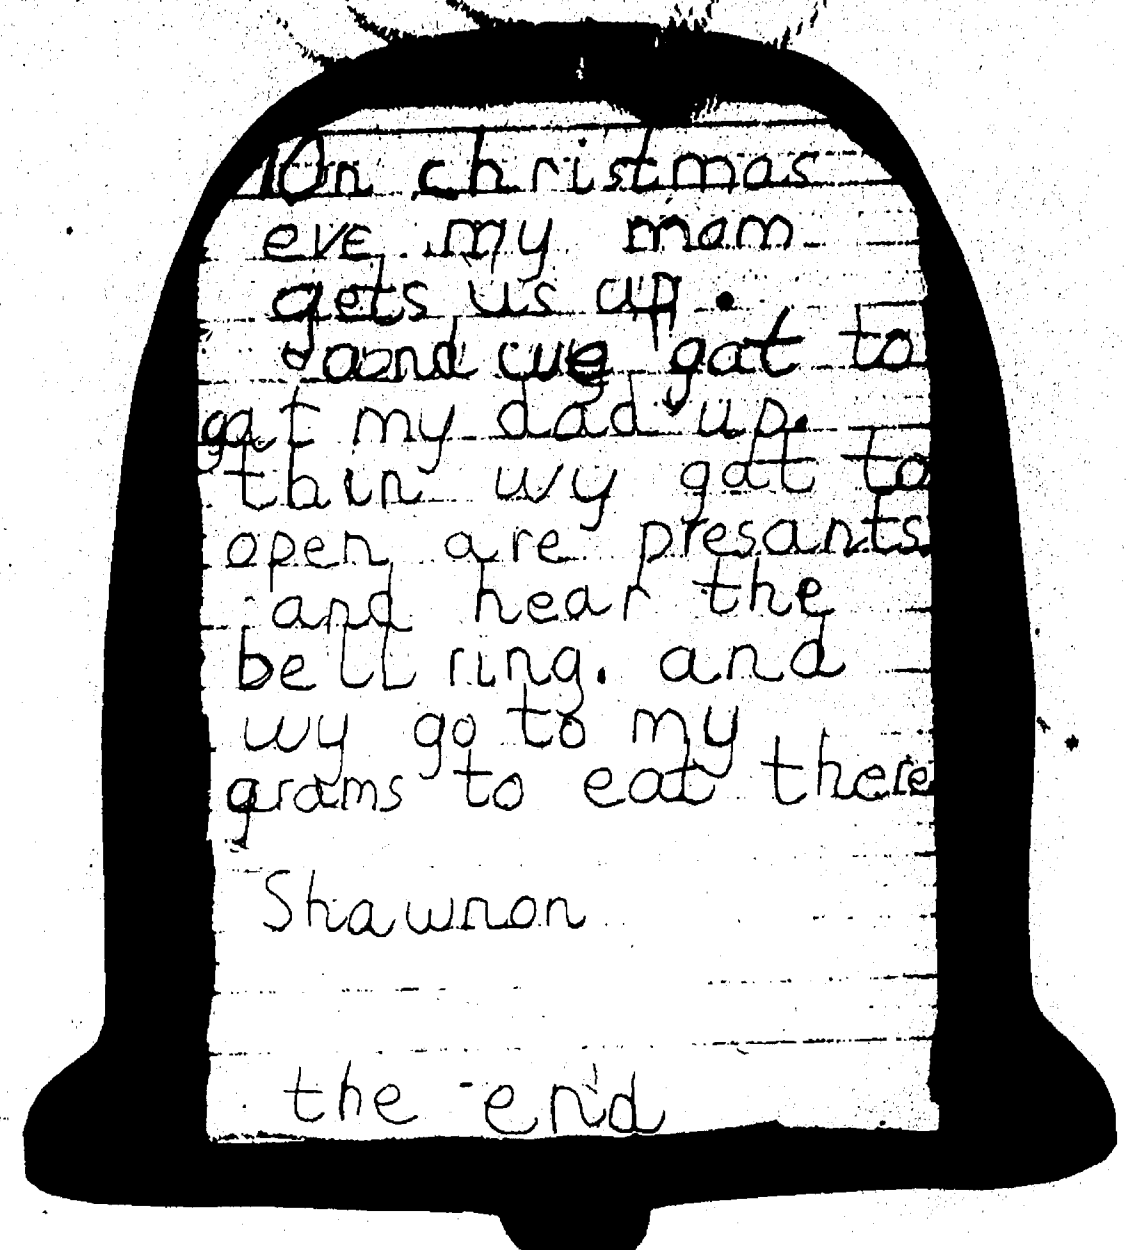 On christmas
eve my mom
gets us up.
and we gat to
gat my dad up.
thin wy gat to
open are presants
and hear the
bell ring. and
wy go to my
grams to eat there
Shawnon
the end